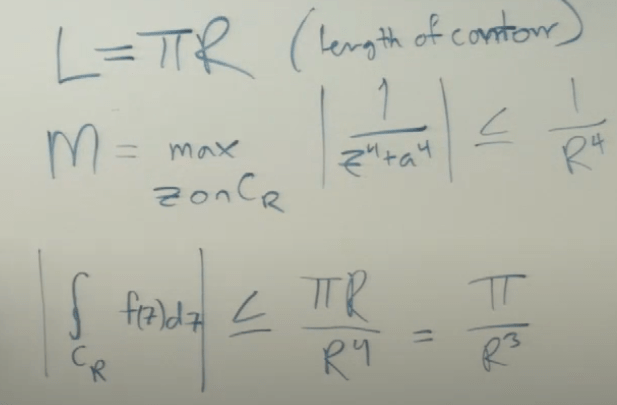 L = πR (length of contour)
M = max z on C_R |1/(z^4+a^4)| ≤ 1/R^4
|∫_{C_R} f(z)dz| ≤ πR/R^4 = π/R^3